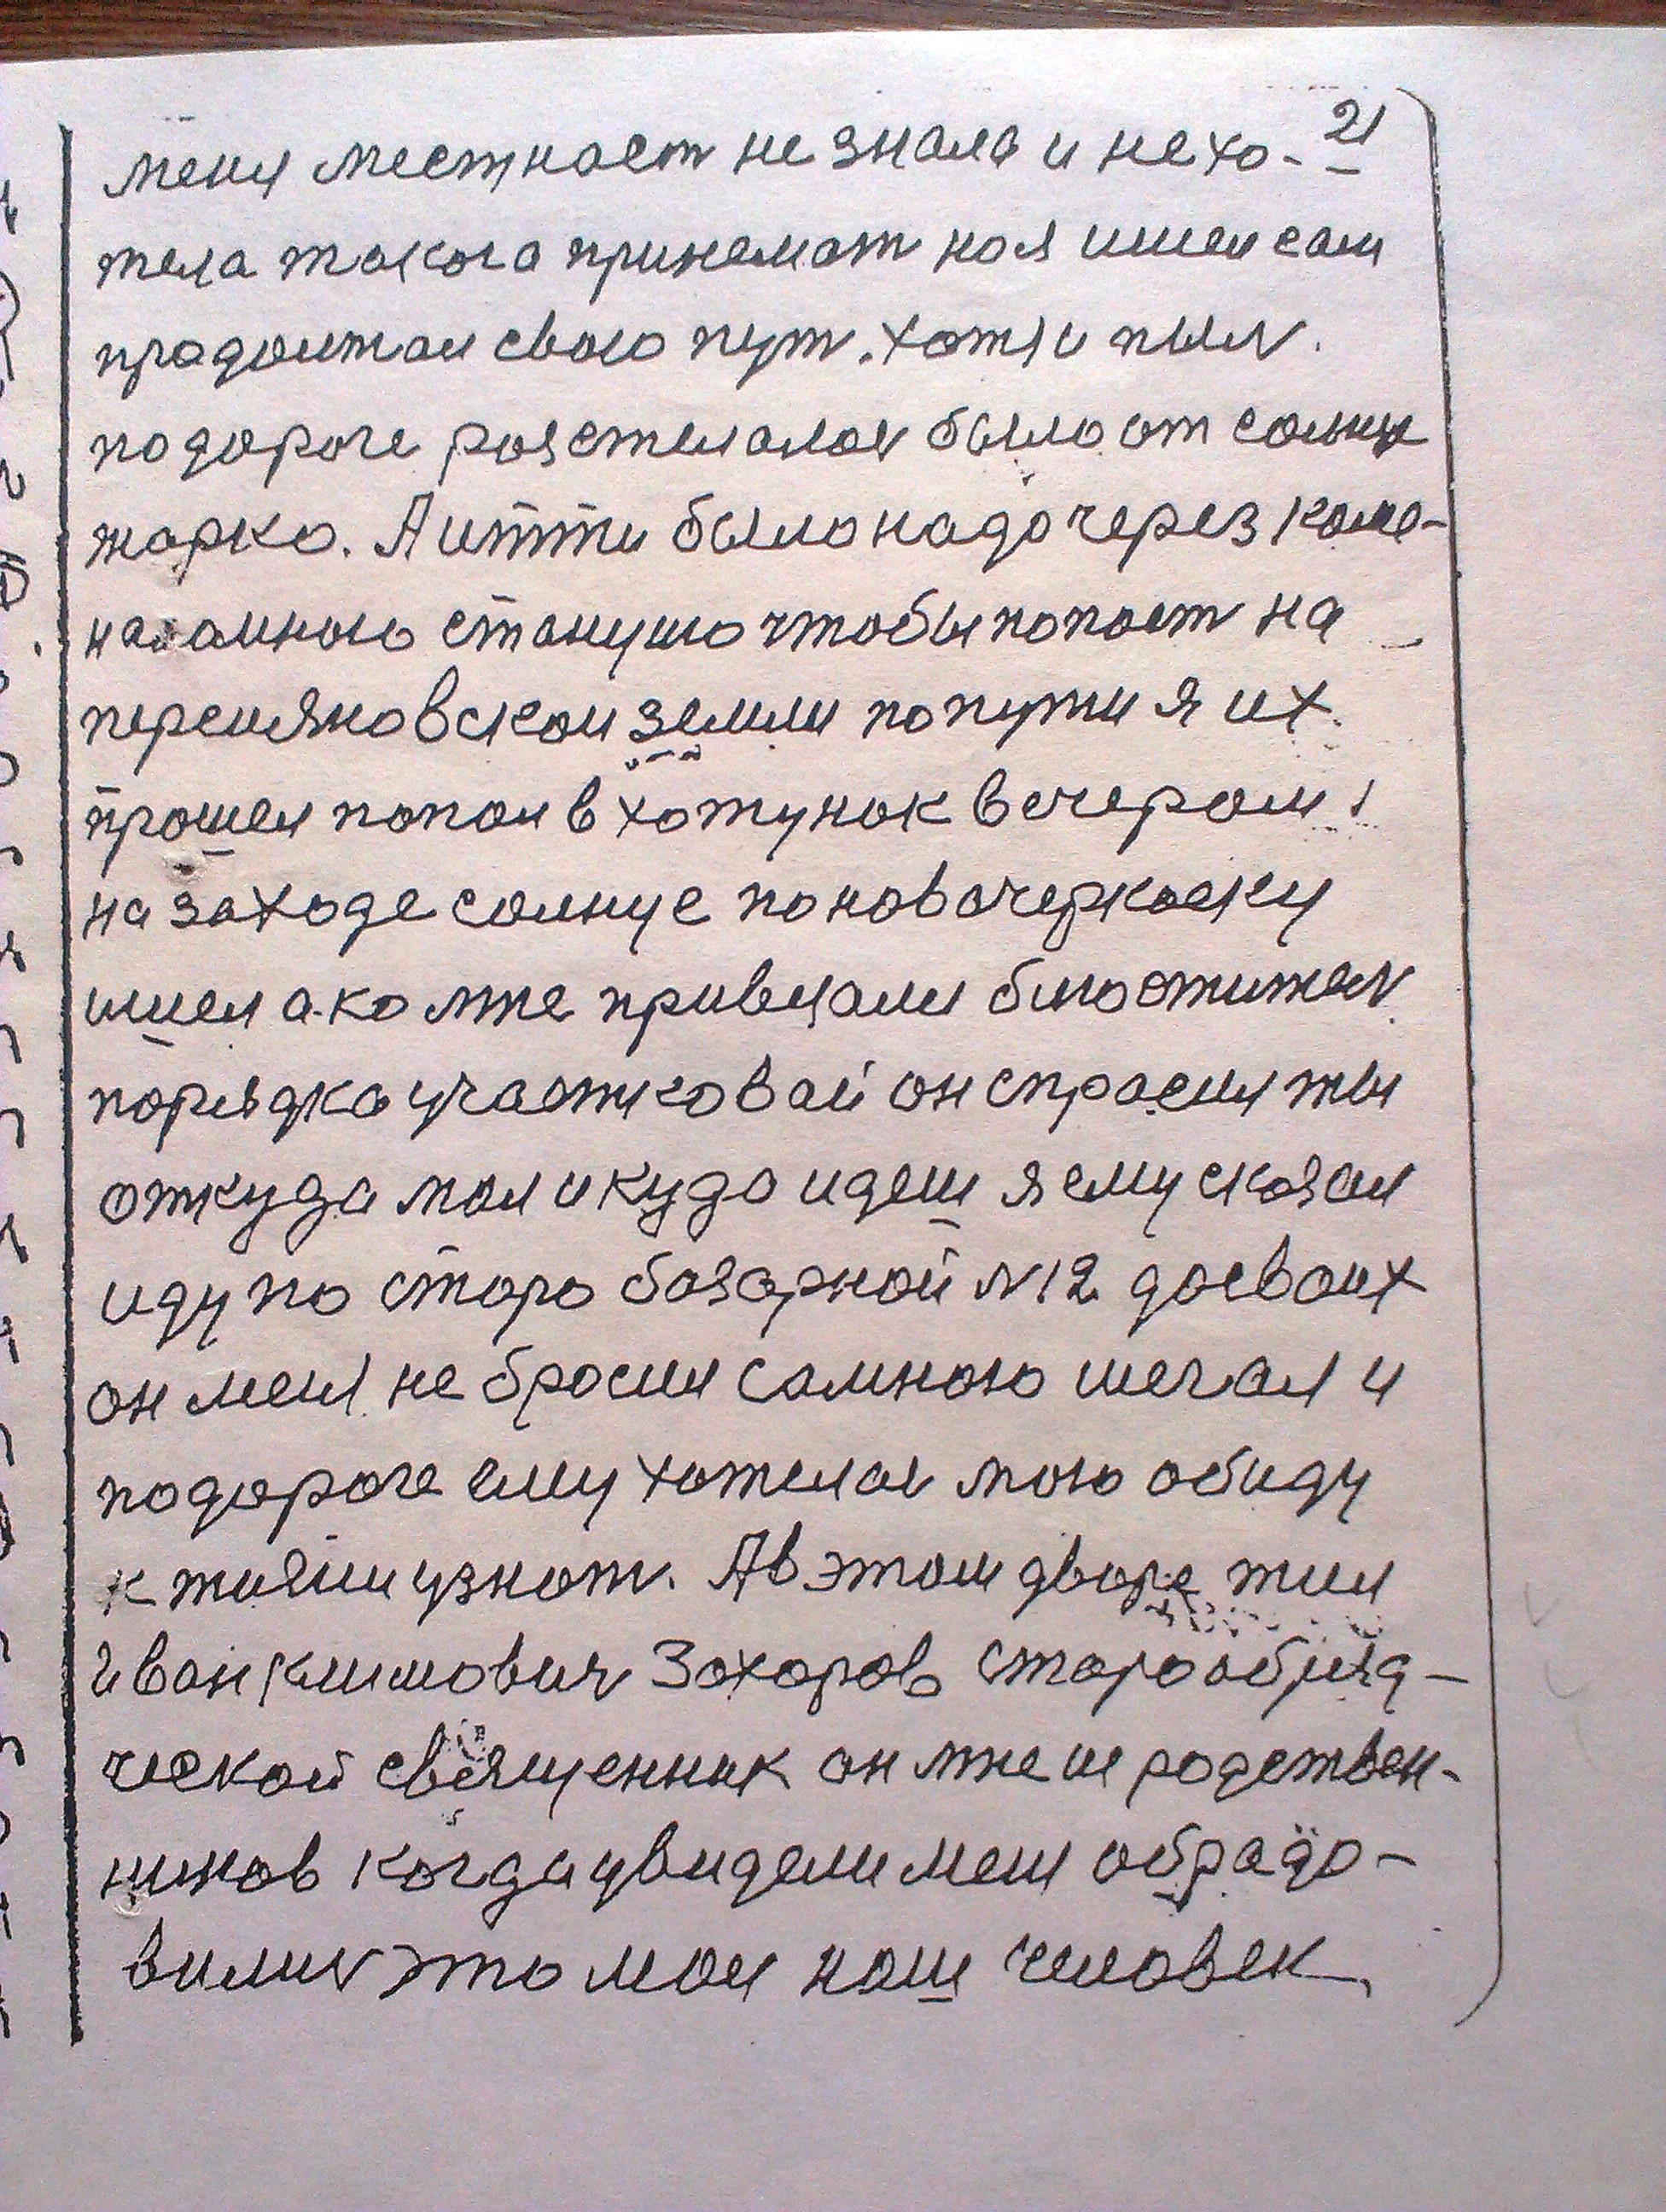 21
меня местнаст не знала и не хо-
тела такога принемат но я ишел сам
прадолжал свою пут. хотя и пыль.
подороге разстелалас было от солнца
жарко. А итти было надо через каме-
наломною станушо чтобы попаст на
персияновской земли попути я их
прошел попал в хотунок вечером
на заходе солнце по новочеркаску
ишел а ко мне привезали блюстител
порядка участковай он спрасил ты
откуда мол и куда идеш я ему сказал
иду по старо базарной N12 досвоих
он меня не бросил самною шегал и
подороге ему хателас мою обиду
к тибими узнат. А в этом дворе жил
Иван Климович Захаров старообряд-
ческой священник он мне и родствен-
ников когда увидели меня обрадо-
вилис это мол наш человек